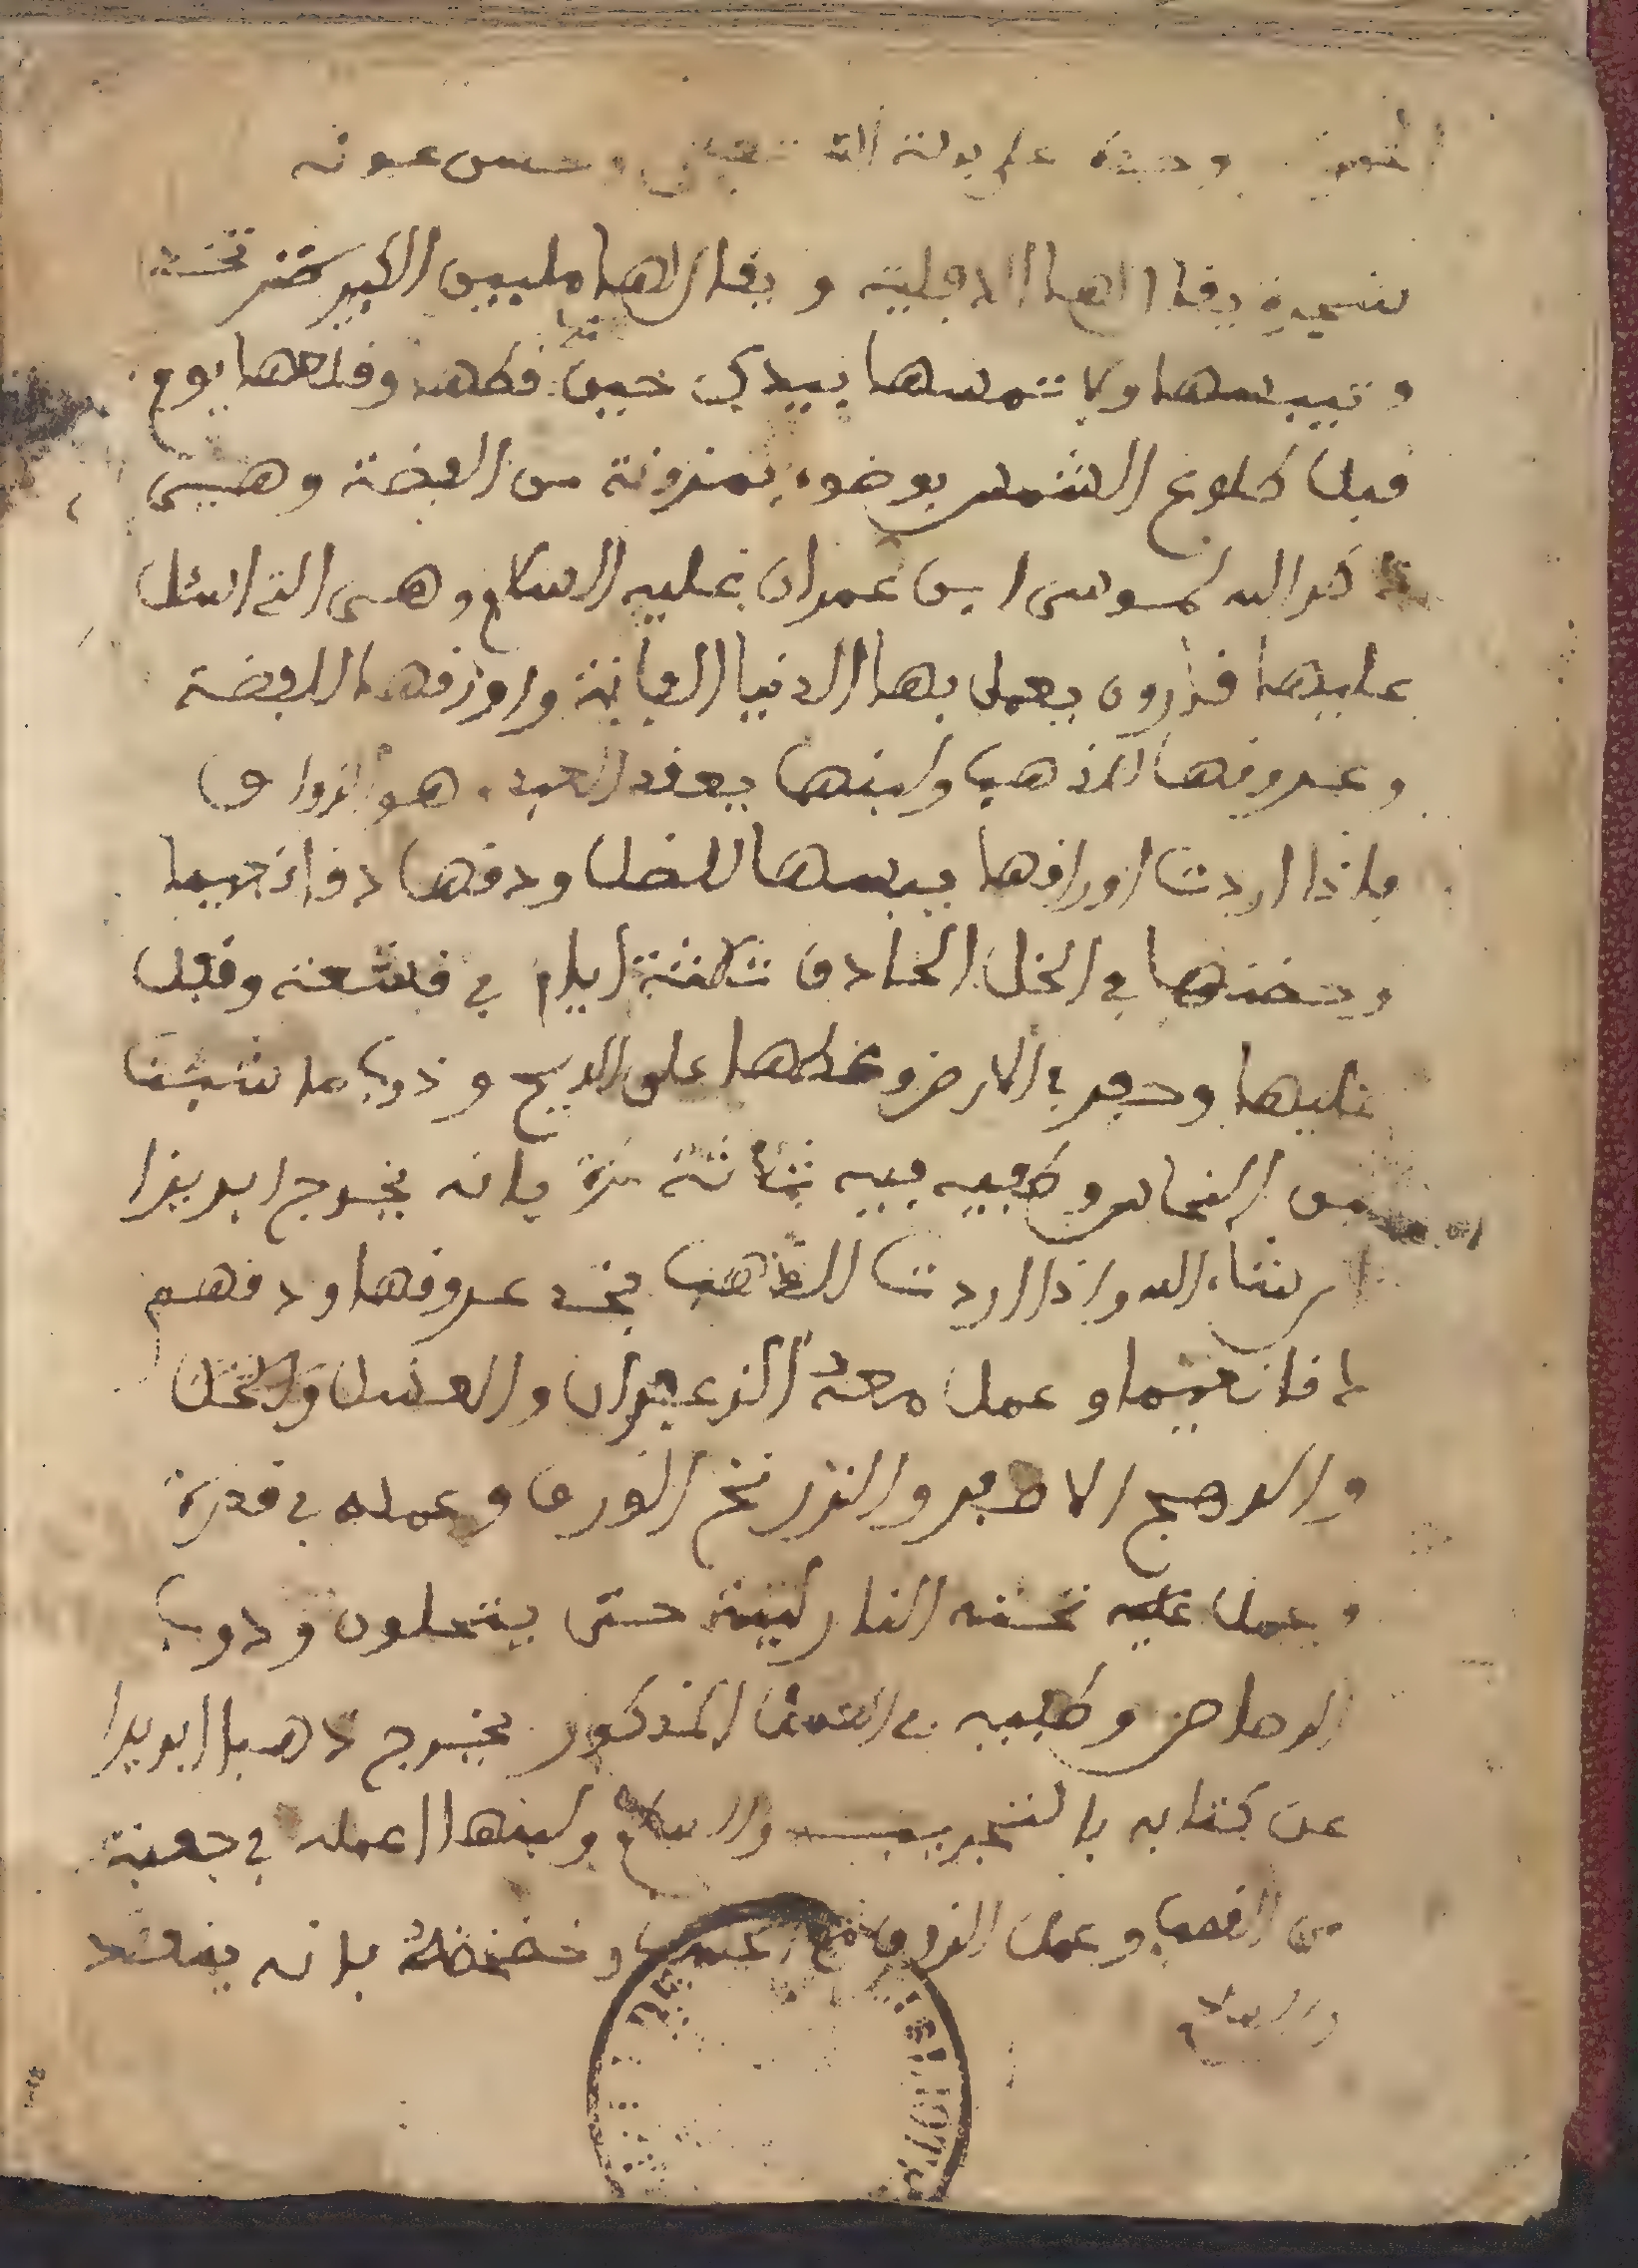 وحده على بركة الله تعالى وحسن عونه
شجيرة يقال لها الاقلية ويقال لها مليين الكبير خذ تخت
وتيبسها ولا تمسها بيدك حين قطها وقلعها يوم
قبل طلوع الشمس بوضوء بمنزونة من الفضة وهي
ذكر الله لموسى ابن عمران عليه السلام وهي التي اسئل
عليها قارون يعمل بها الدنيا الفانية واورقها للفضة
وعروقها للذهب ولبنها يعقد العبد هو الزواق
فاذا اردت اوراقها ييبسها للضل ودقها دقا نعيما
وخضها في الخل الحاذق ثلاثة ايام في قشعة وقفل
عليها وحفر في الارض وغطها على الريح وذوب ما شئت
من النحاس وطفيه فيه ثلاثة مرة فانه يخرج ابريزا
ان شاء الله واذا اردت الذهب فخذ عروقها ودقهم
دقا نعيما وعمل معه الزعفران والعسل والخل
والرهج الاصفر والزرنخ الورق وعمله في قدرة
وعمل عليه تحته النار لينة حتى ينحلون وذوب
الرصاص وطفيه في الماء المذكور يخرج ذهبا ابريزا
عن كتابه بالتجريب والسلام ولبنها اعمله في جعبة
من القصب وعمل الزوق مع وخضخضه فانه ينعقد
والسلام